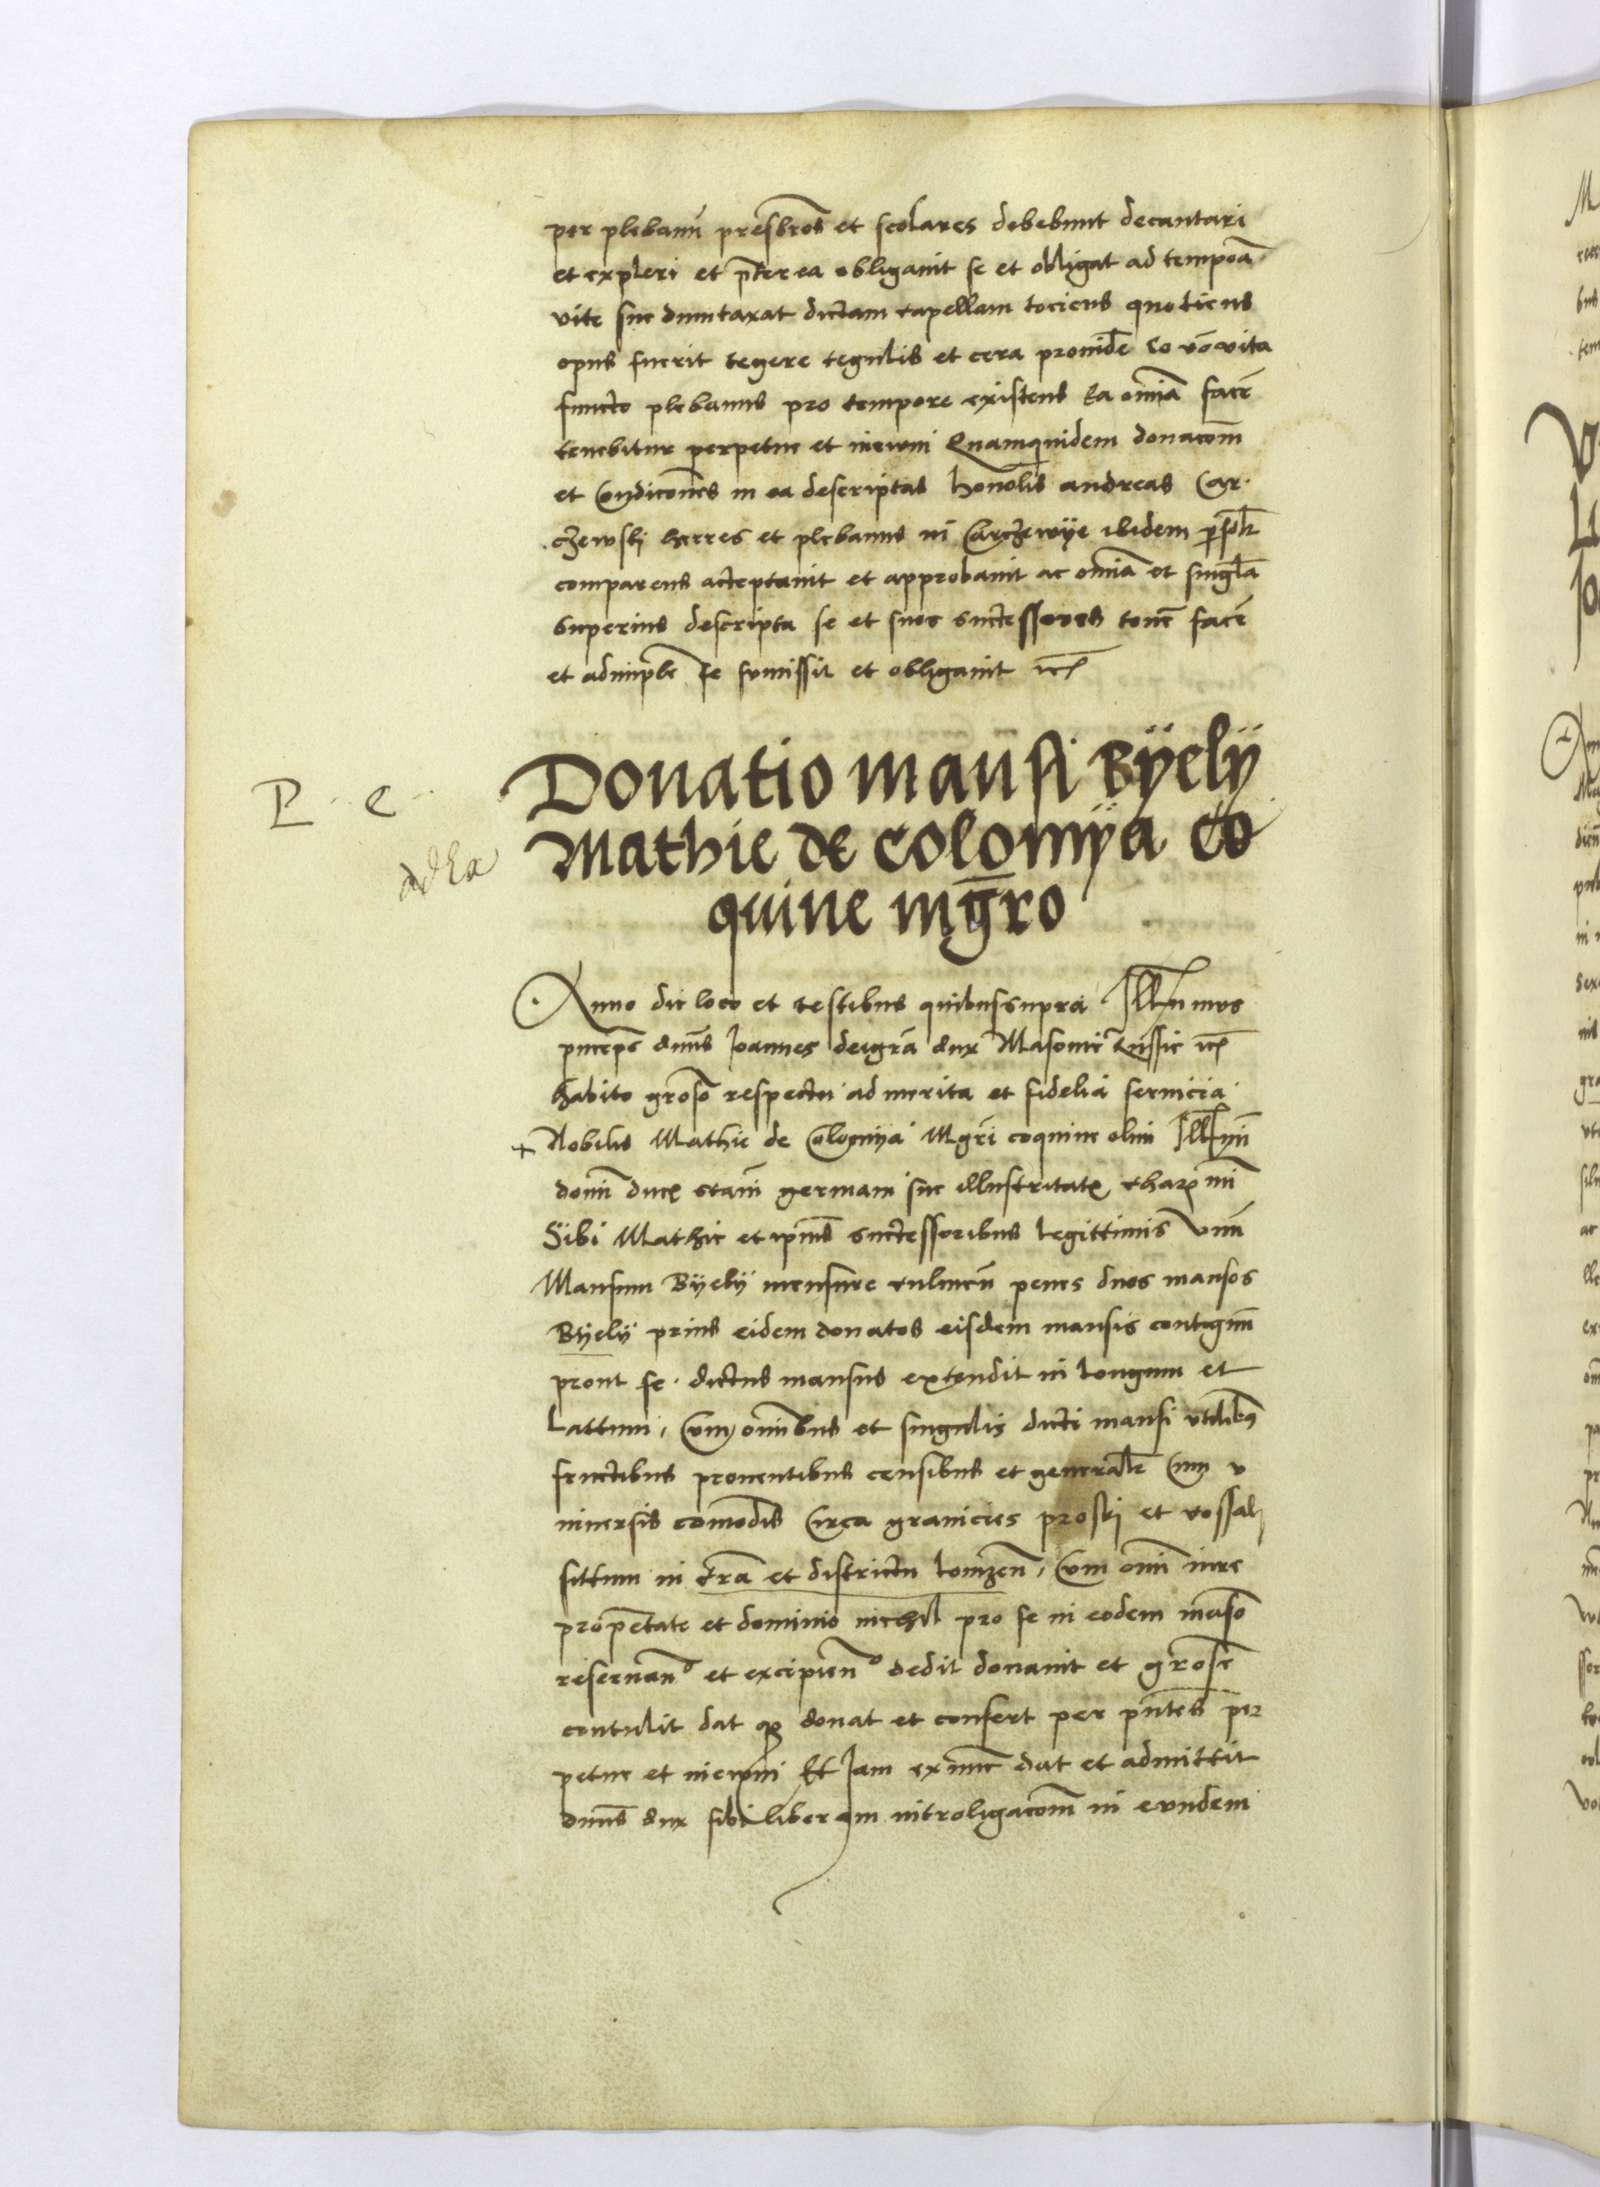 per plebanū presbrōs et scolares debebunt decantari
et expleri et p̄terea obligauit se et obligat ad tempora
vite sue dumtaxat dictam capellam tociens quotiens
opus fuerit tegere tegulis et cera prouidē Eo vō vita
functo plebanus pro tempore existens Ea om̄ia facē
tenebitur perpetue et ineuum Quamquidem donacōm
et Condicōnes in ea descriptas honōlis andreas Car
czewskj herres et plebanus in Carczewÿe ibidem p̄sōlr
comparens acceptauit et approbauit ac om̄ia et singl̄a
superius descripta se et suos successores tenē facē
et adimplē se submissit et obligauit rc̄
Donatio mansi Bÿelÿ
Mathie de Colomÿa Co
quine mḡro
P · · e · ·
ad Ea
Anno die loco et testibus quibus supra Ill̄rimus
princeps dn̄us Joannes dei grā dux Masouie Russie rc̄
habito groso respectu ad merita et fidelia seruicia
Nobilis Mathie de Colomÿa Mgrī coquine olim Ill̄rimi
domī ducis Stanī germani sue illustritatis charimī
Sibi Mathie et ip̄ius successoribus legittimis vnū
Mansum Bÿelÿ mensure culmeñ penes duos mansos
Bÿelÿ prius eidem donatos eisdem mansis contiguū
prout se dictus mansus extendit in longum et
Lattum, Cum om̄ibus et singulis dicti mansi vtilibus
fructibus prouentibus censibus et generalr Cum v
niuersis comodis Circa granicies proskj et kossakj
sittum in tr̄ra et districtu Lomzeñ, Cum om̄i iure
proprietate et dominio nichil pro se in eodem manso
reseruañᵒ et excipieñᵒ dedit donauit et groserie
contulit dat qꝫ donat et confert per pn̄tes per
petue et ineuum Et Jam ex nunc dat et admittit
dn̄us dux sibi liberam intromligacōm in eundem